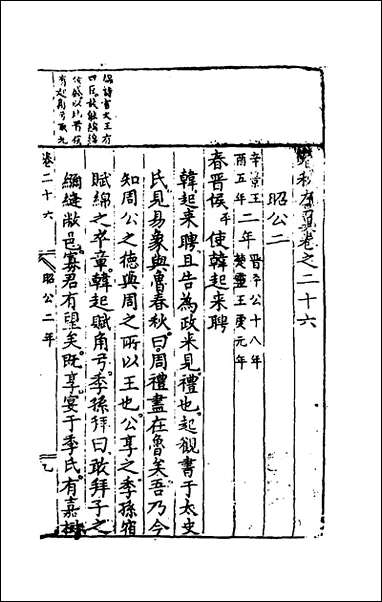 緜詩言文王有
四臣故能緜緜
致興以晉侯
有
春秋左傳卷之二十六
昭公二
辛景王二年晉平公十八年
酉五年楚靈王虔元年
春晉侯使韓起來聘
韓起來聘且告為政來見禮也起觀書于太史
氏見易象與魯春秋曰周禮盡在魯矣吾乃今
知周公之德與周之所以王也公享之季孫宿
賦緜之卒章韓起賦角弓季孫拜曰敢拜子之
彌縫敝邑寡君有望矣既享宴于季氏有嘉樹
卷二十六
昭公二年
九